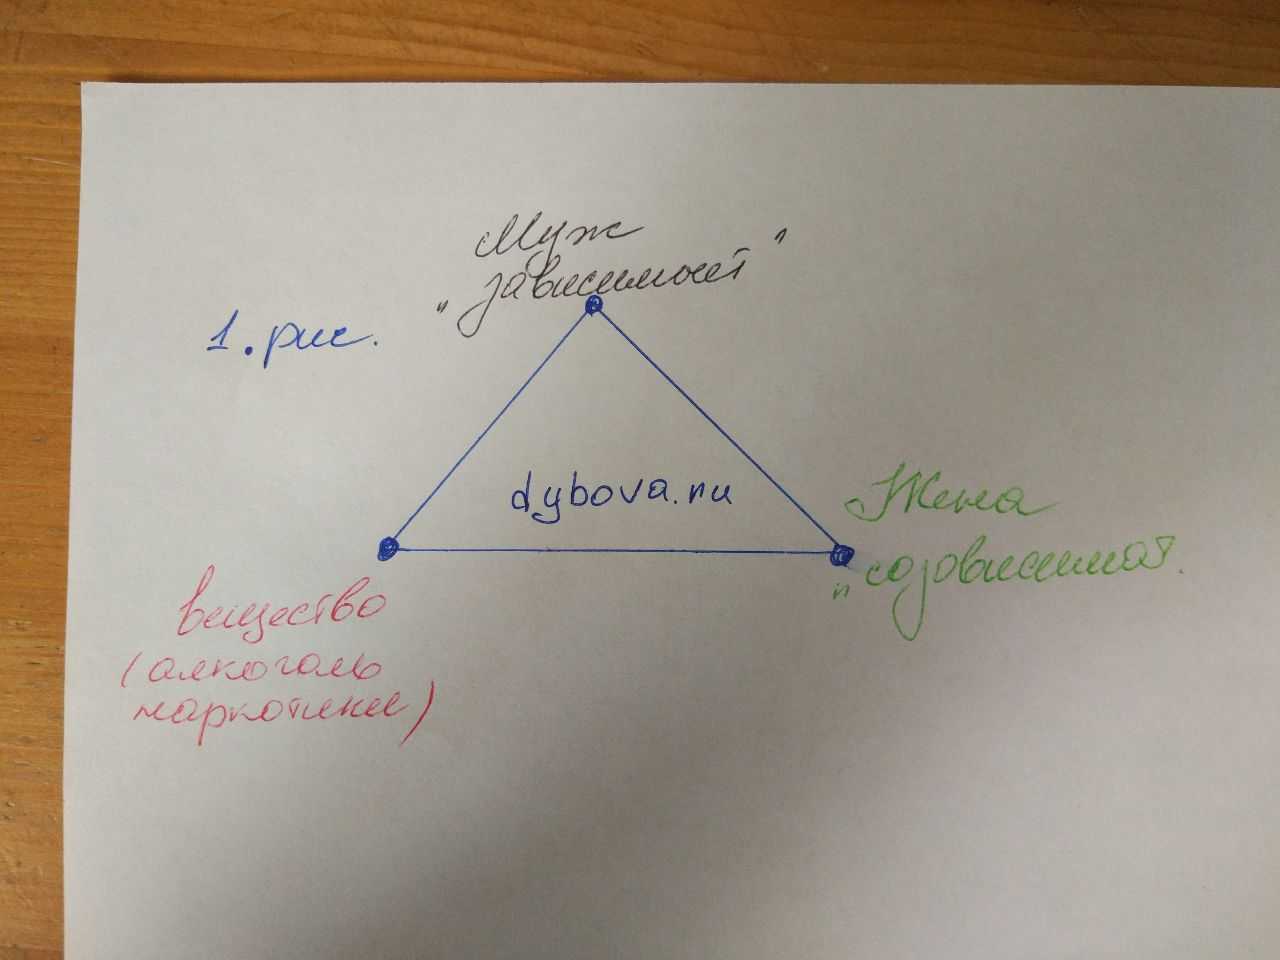 Муж
"зависимост"
1. рис.
dybova.ru
Жена
"созависимост.
вещество
(алкоголь
наркотики)